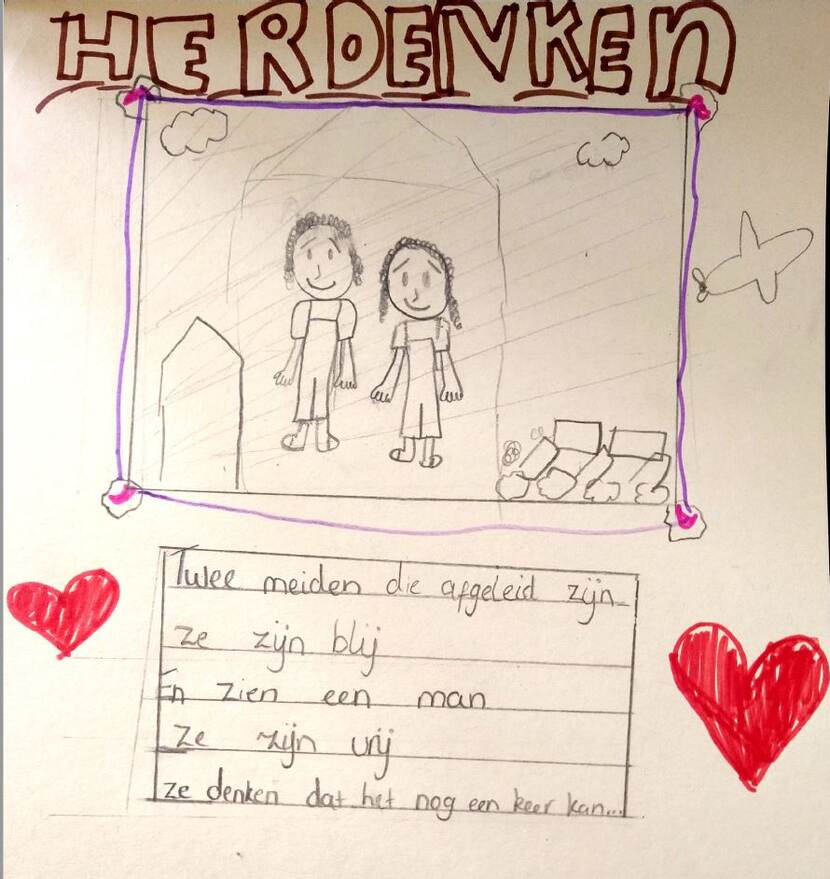 HERDENKEN
Twee meiden die afgeleid zijn
ze zijn blij
En zien een man
ze zijn vrij
ze denken dat het nog een keer kan...